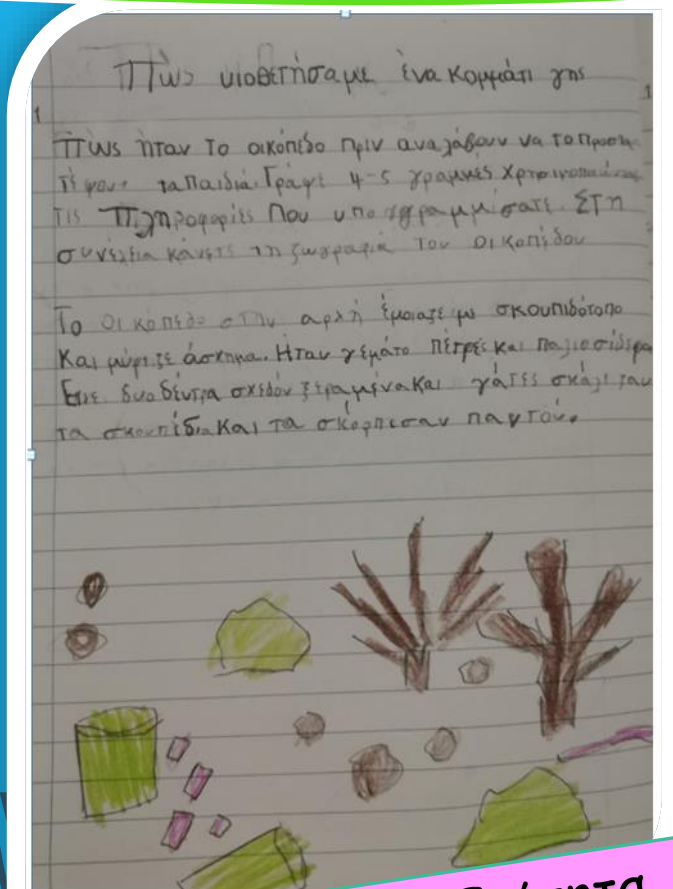 Πώς υιοθετήσαμε ένα κομμάτι γης
1
1
Πώς ήταν το οικόπεδο πριν αναλάβουν να το προστα
τέψουν τα παιδιά. Γράψε 4-5 γραμμές
τις πληροφορίες που υπογραμμίσατε. Στη
συνέχεια κάνετε τη ζωγραφιά του οικοπέδου
Το οικόπεδο στην αρχή έμοιαζε με σκουπιδότοπο
Και μύριζε άσκημα. Ήταν γεμάτο πέτρες και παλιοσίδερα
δυο δέντρα σχεδόν ξεραμένα Και γάτες
τα σκουπίδια Και τα σκόρπισαν παντού.